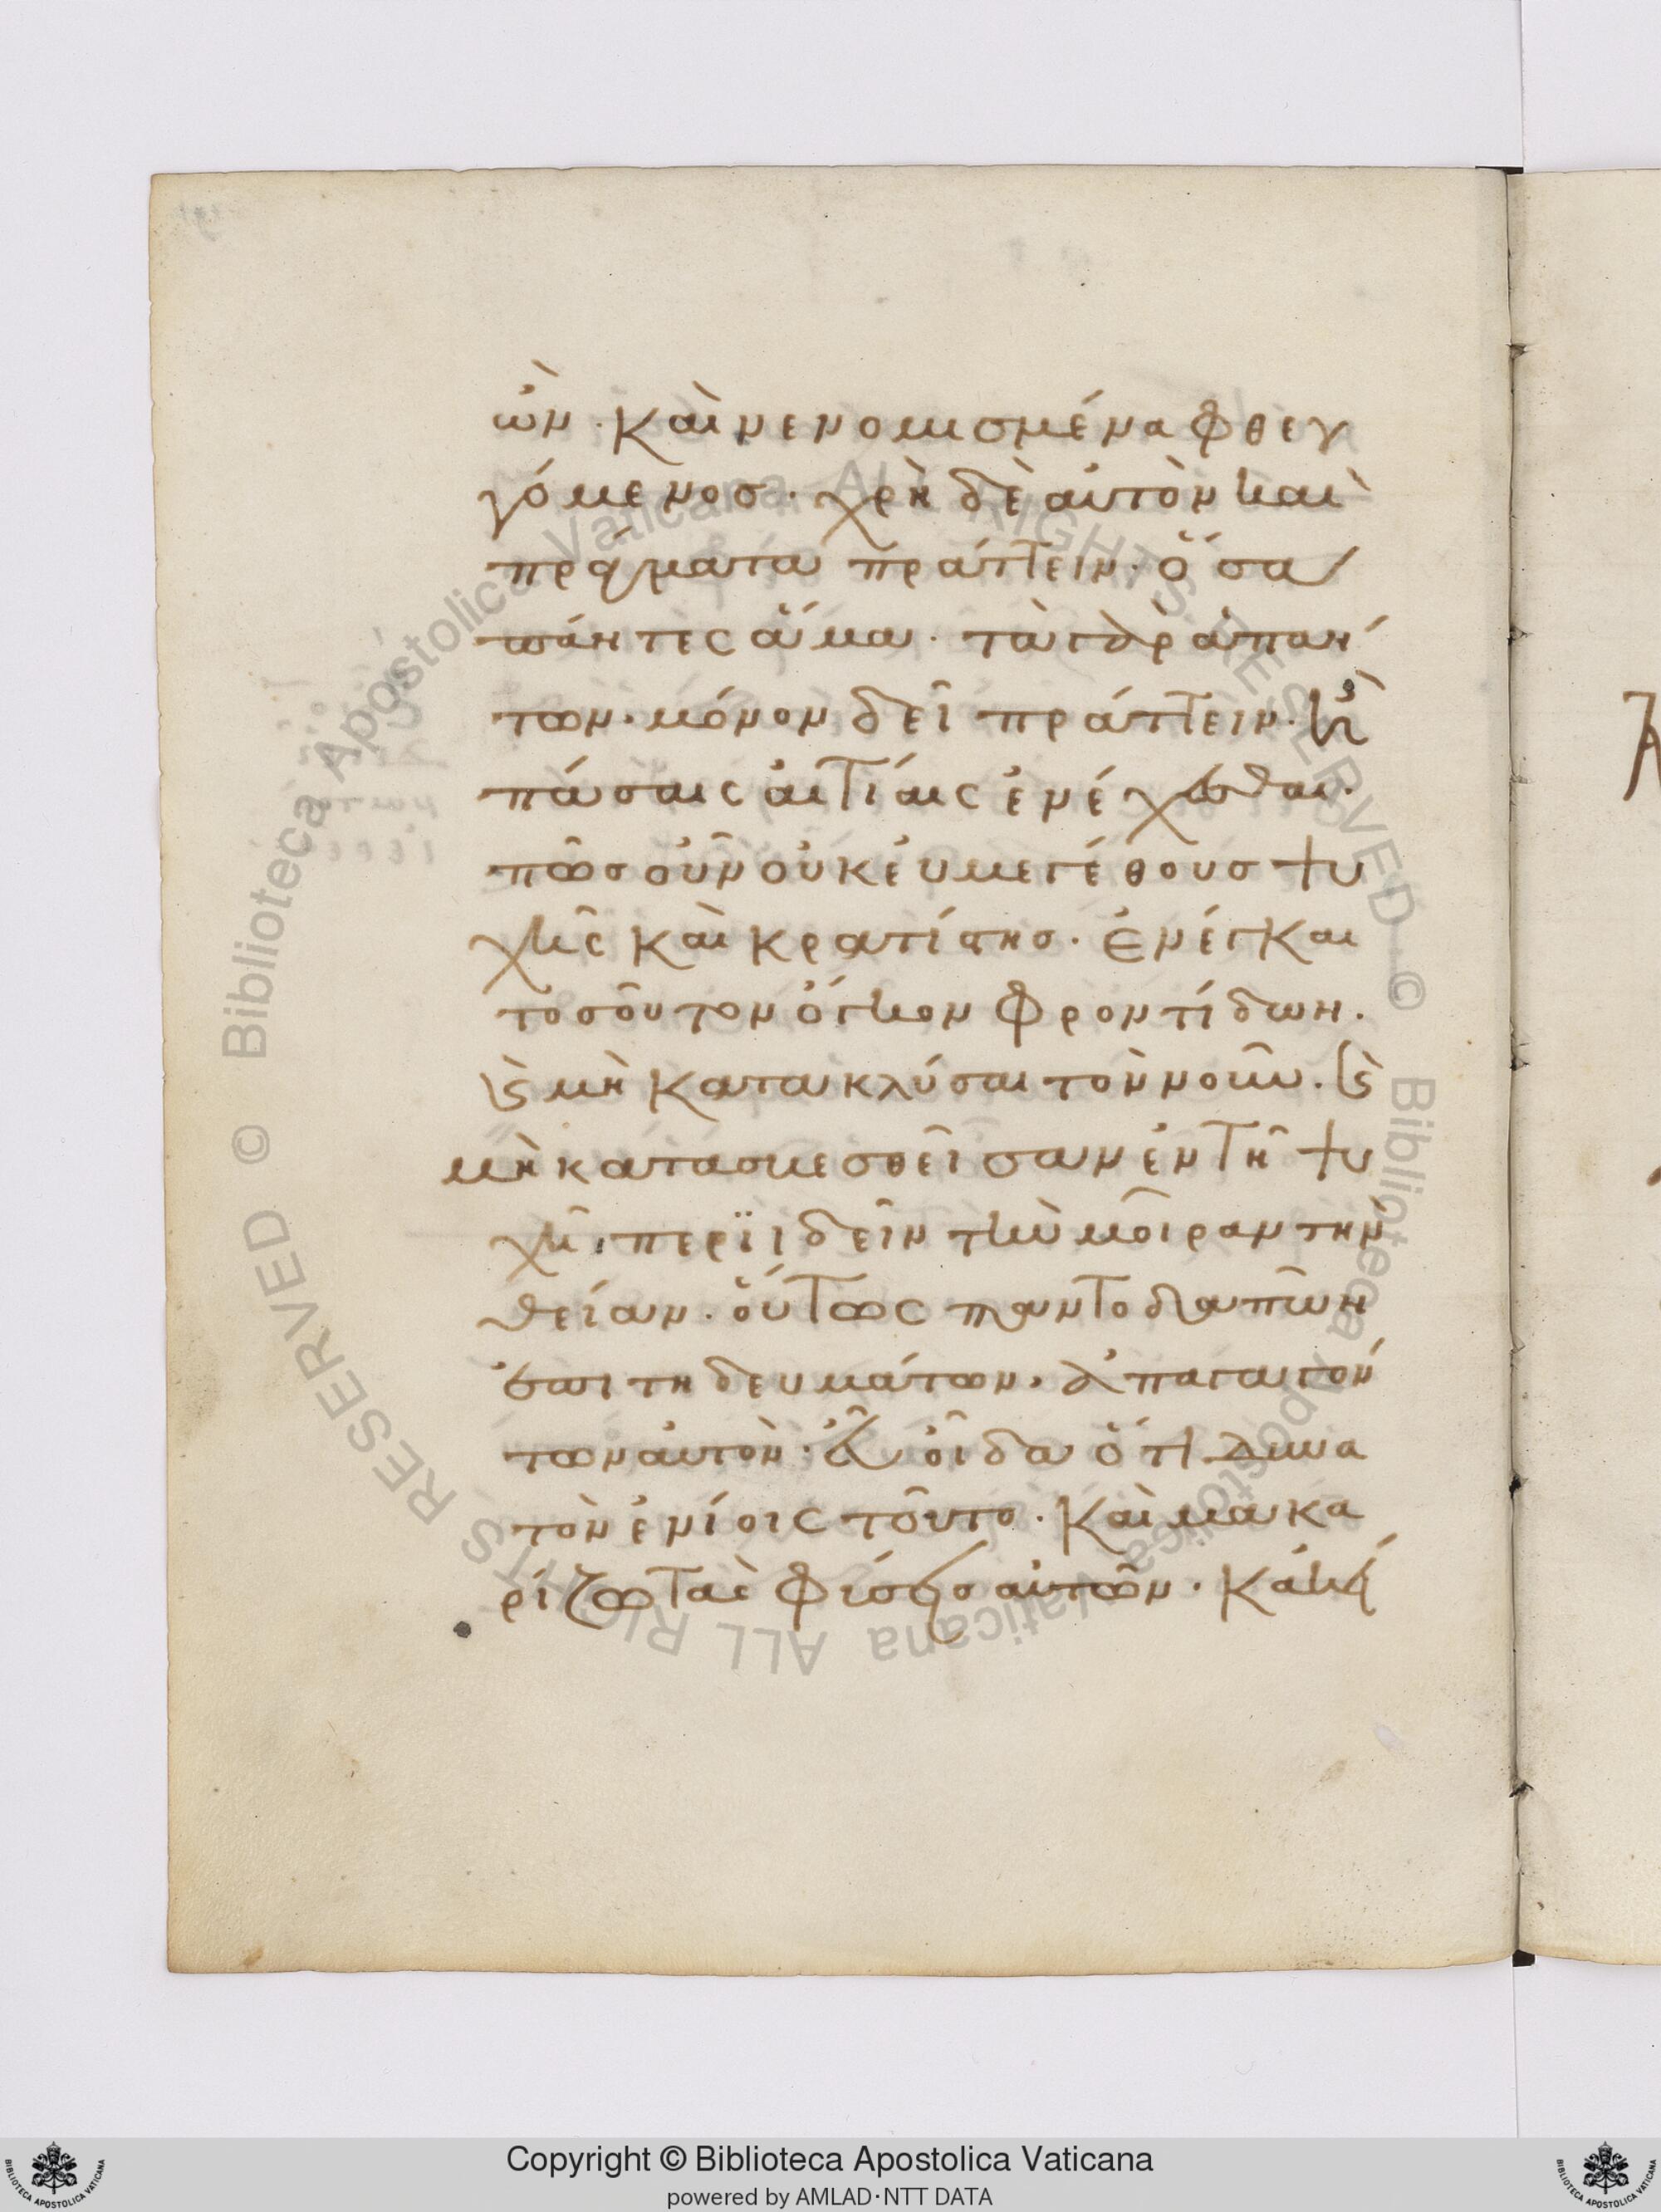 ὢν. καὶ νενομισμένα φθεγ
γόμενος. χρὴ δὲ αὐτὸν καὶ
πράγματα πράττειν. ὅσα
πάντες ἅμα. τὰ γὰρ ἁπάν
των. μόνον δεῖ πράττειν. κἂν
πάσαις αἰτίαις ἐνέχεσθαι.
πῶς οὖν οὐκ εὐμεγέθους ψυ
χῆς καὶ κρατίστης. ἐνεγκαι
τοσοῦτον ὄγκον φροντίδων.
καὶ μὴ κατακλύσαι τὸν νοῦν. καὶ
μὴ κατασβεσθεῖσαν ἐν τῆ ψυ
χῆ, περϊιδεῖν τὴν μοῖραν τὴν
θείαν. οὕτως παντοδαπῶν
ἐπιτηδευμάτων. ἀπαγαγόν
των αὐτόν. εὖ οἶδα ὅτι δυνα
τὸν ἐνίοις τοῦτο. καὶ μακα
ρίζω τὰς φύσεις αὐτῶν. κἀκεί
Biblioteca Apostolica Vaticana ALL RIGHTS RESERVED ©
Biblioteca Apostolica Vaticana ALL RIGHTS RESERVED ©
Copyright © Biblioteca Apostolica Vaticana
powered by AMLAD·NTT DATA
BIBLIOTECA APOSTOLICA VATICANA
BIBLIOTECA APOSTOLICA VATICANA